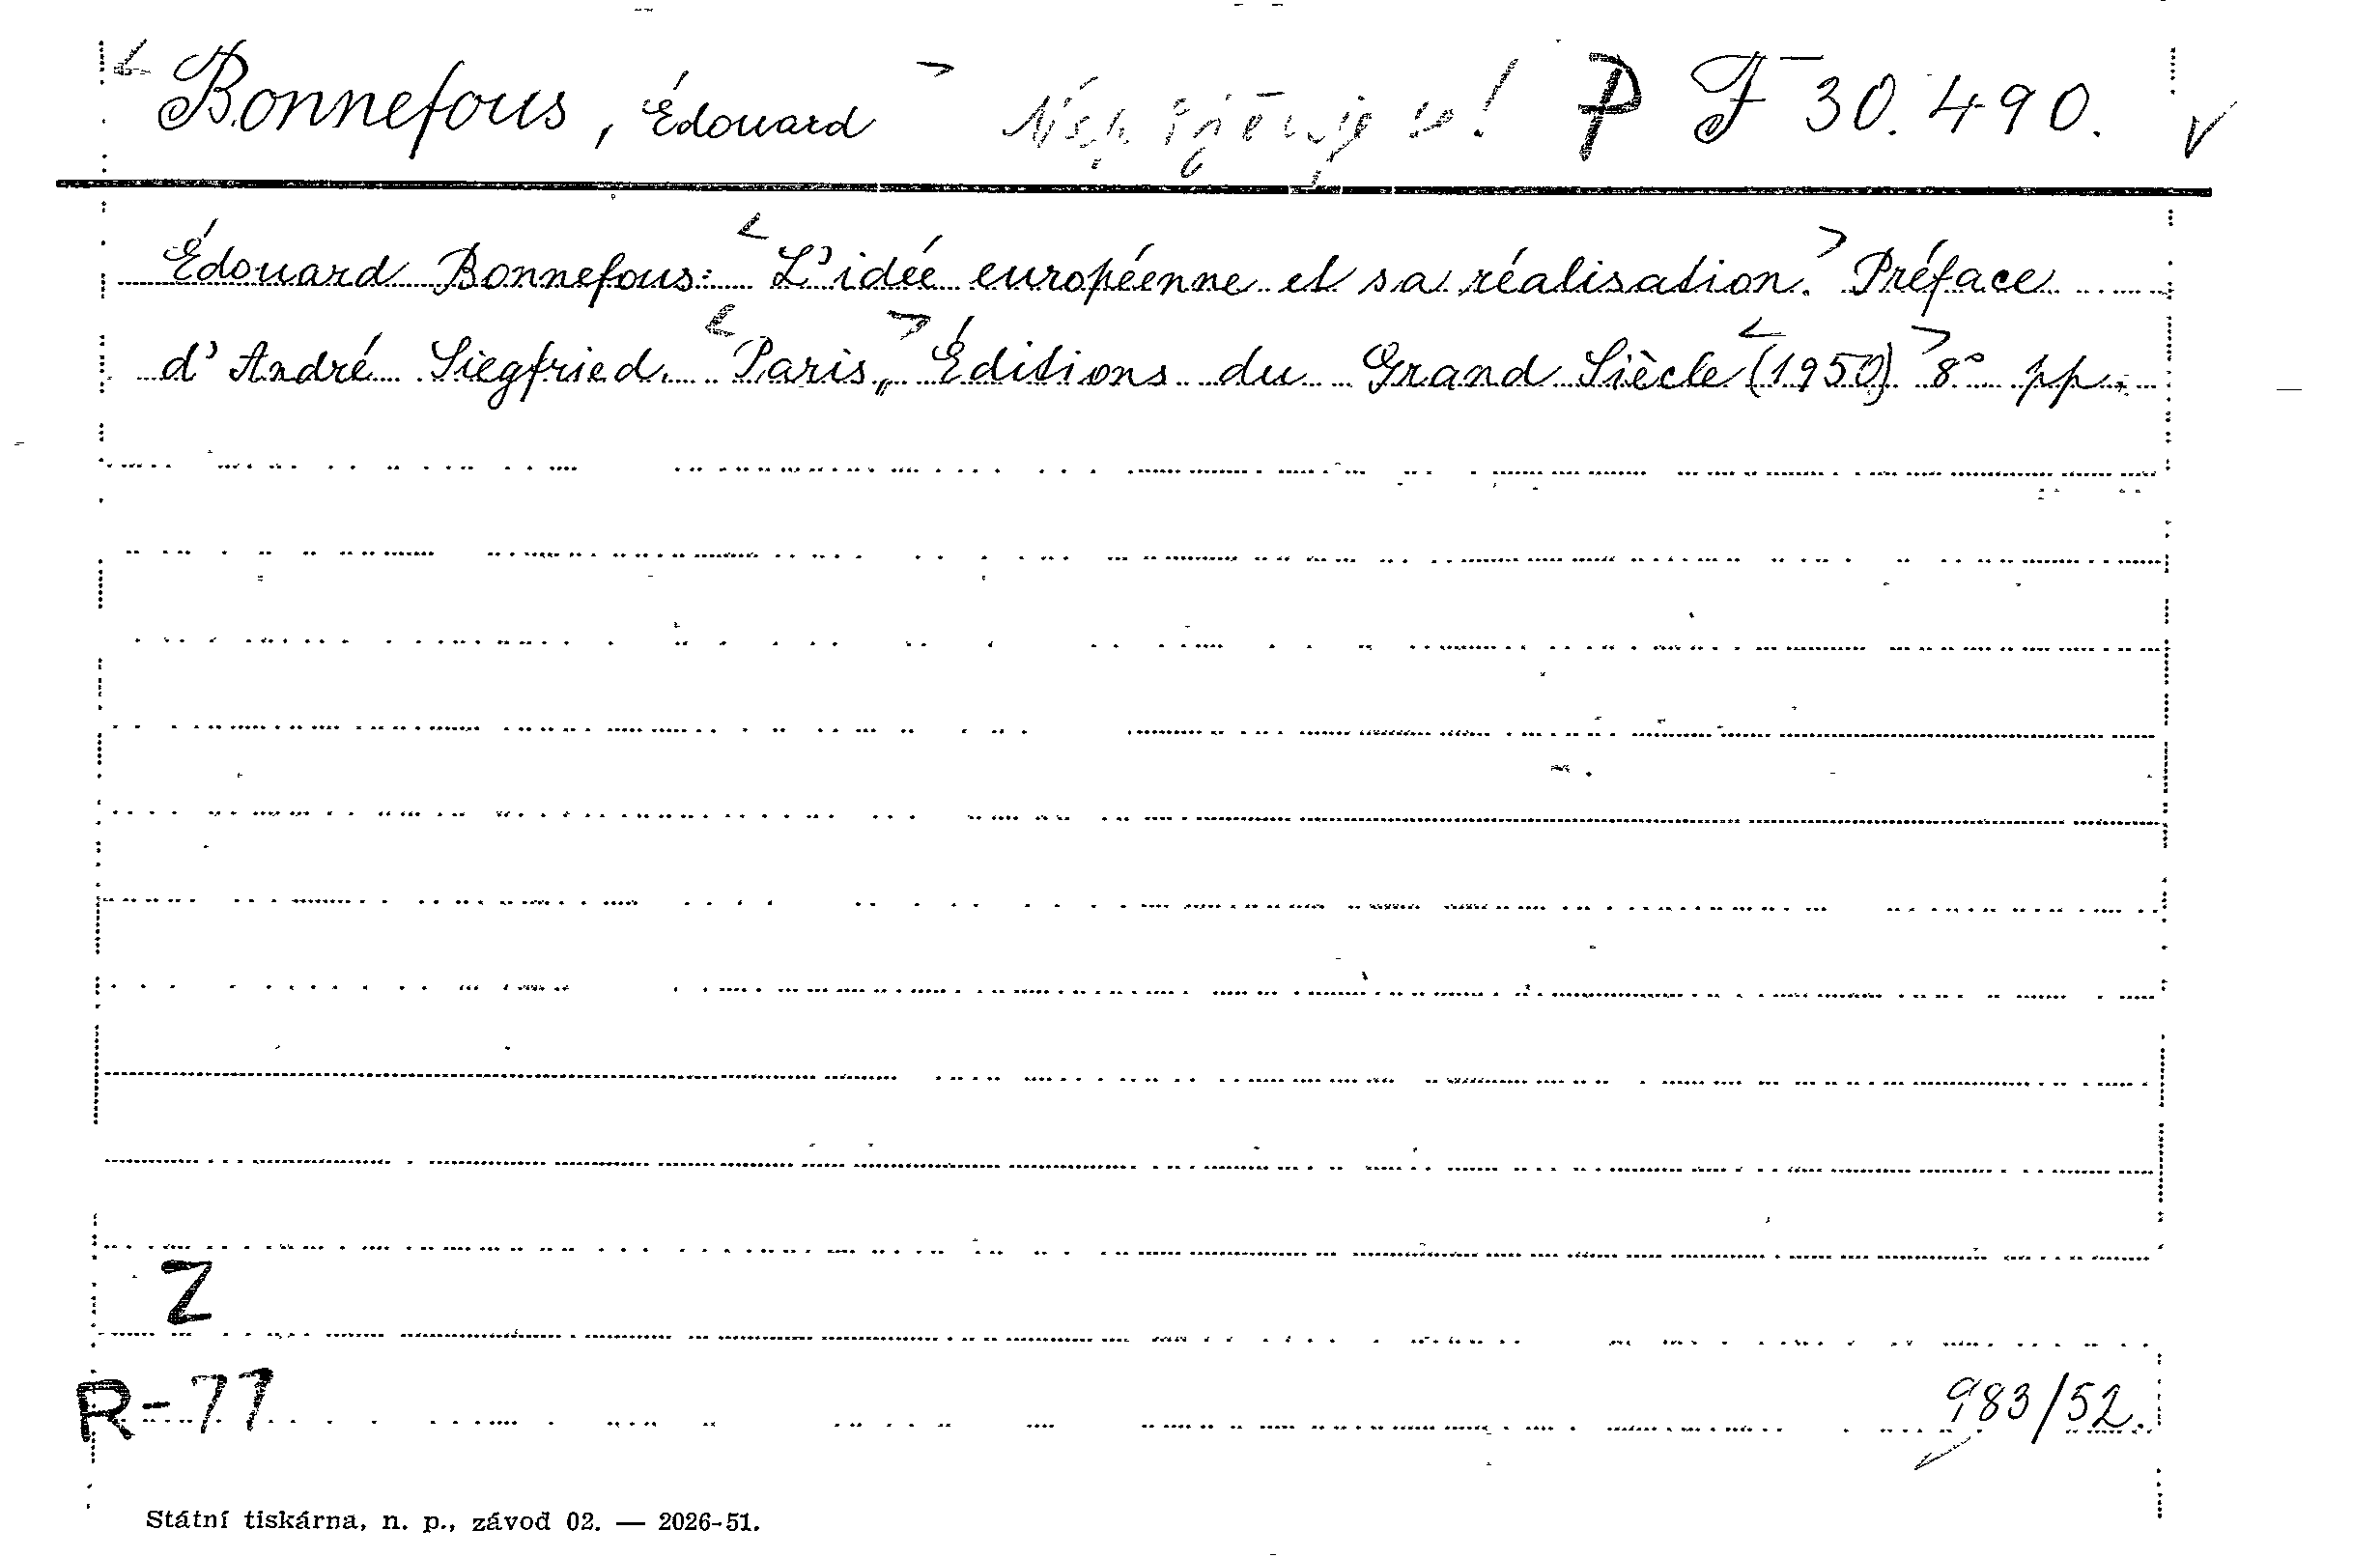 Bonnefous, Édouard P F 30.490. V
Édouard Bonnefous: L'idée européenne et sa réalisation. Préface
d'André Siegfried. Paris, Éditions du Grand Siècle (1950) 8° pp.
Z
R-77
983/52.
Státní tiskárna, n. p., závod 02. — 2026-51.